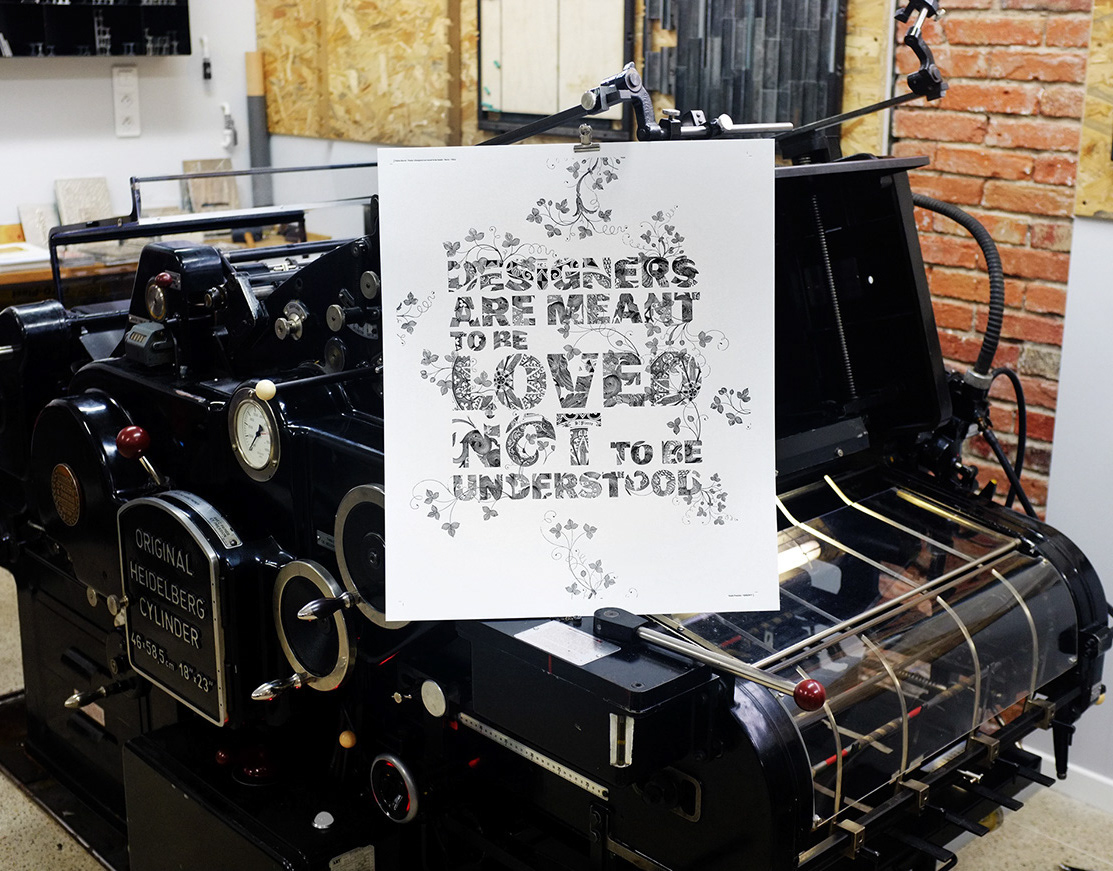 DESIGNERS
ARE MEANT
TO BE
LOVED
NOT TO BE
UNDERSTOOD
ORIGINAL
HEIDELBERG
CYLINDER
46×58,5 cm 18"×23"